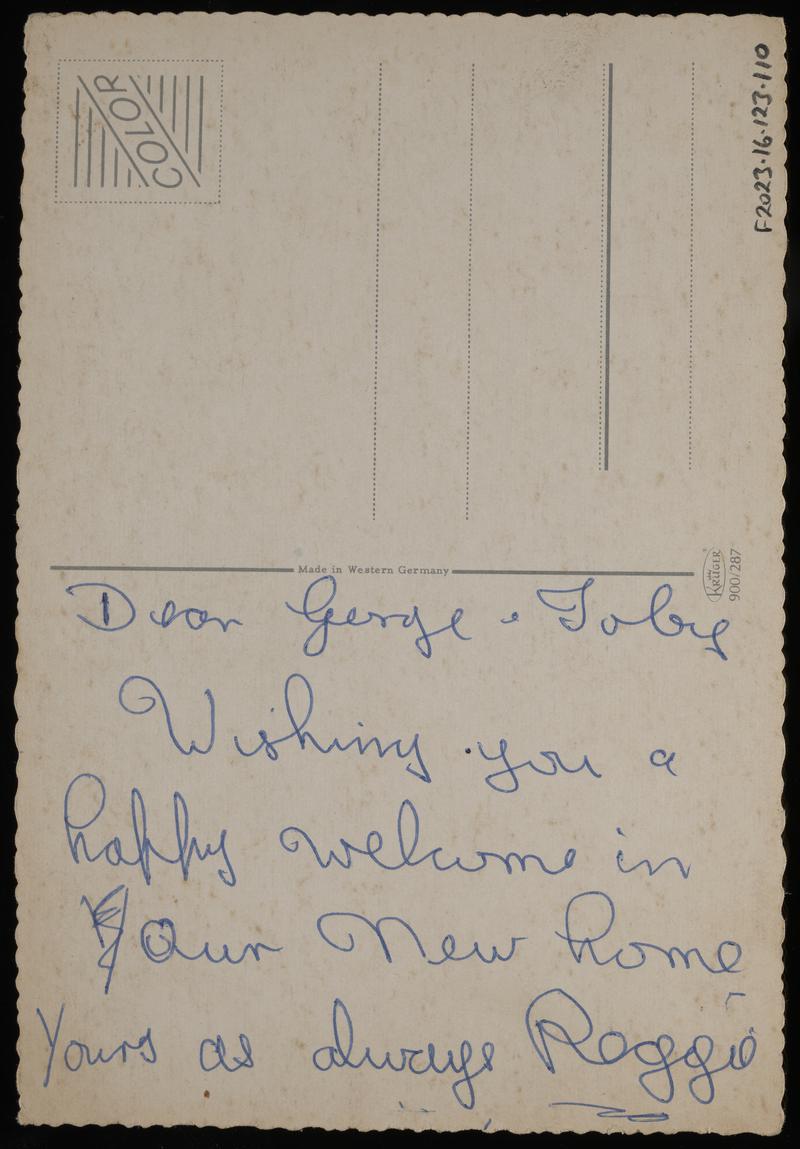 COLOR
F2023.16.123.110
Made in Western Germany
KRÜGER
900/287
Dear George & Toby
Wishing you a
happy welcome in
Your New home
Yours as always Reggie